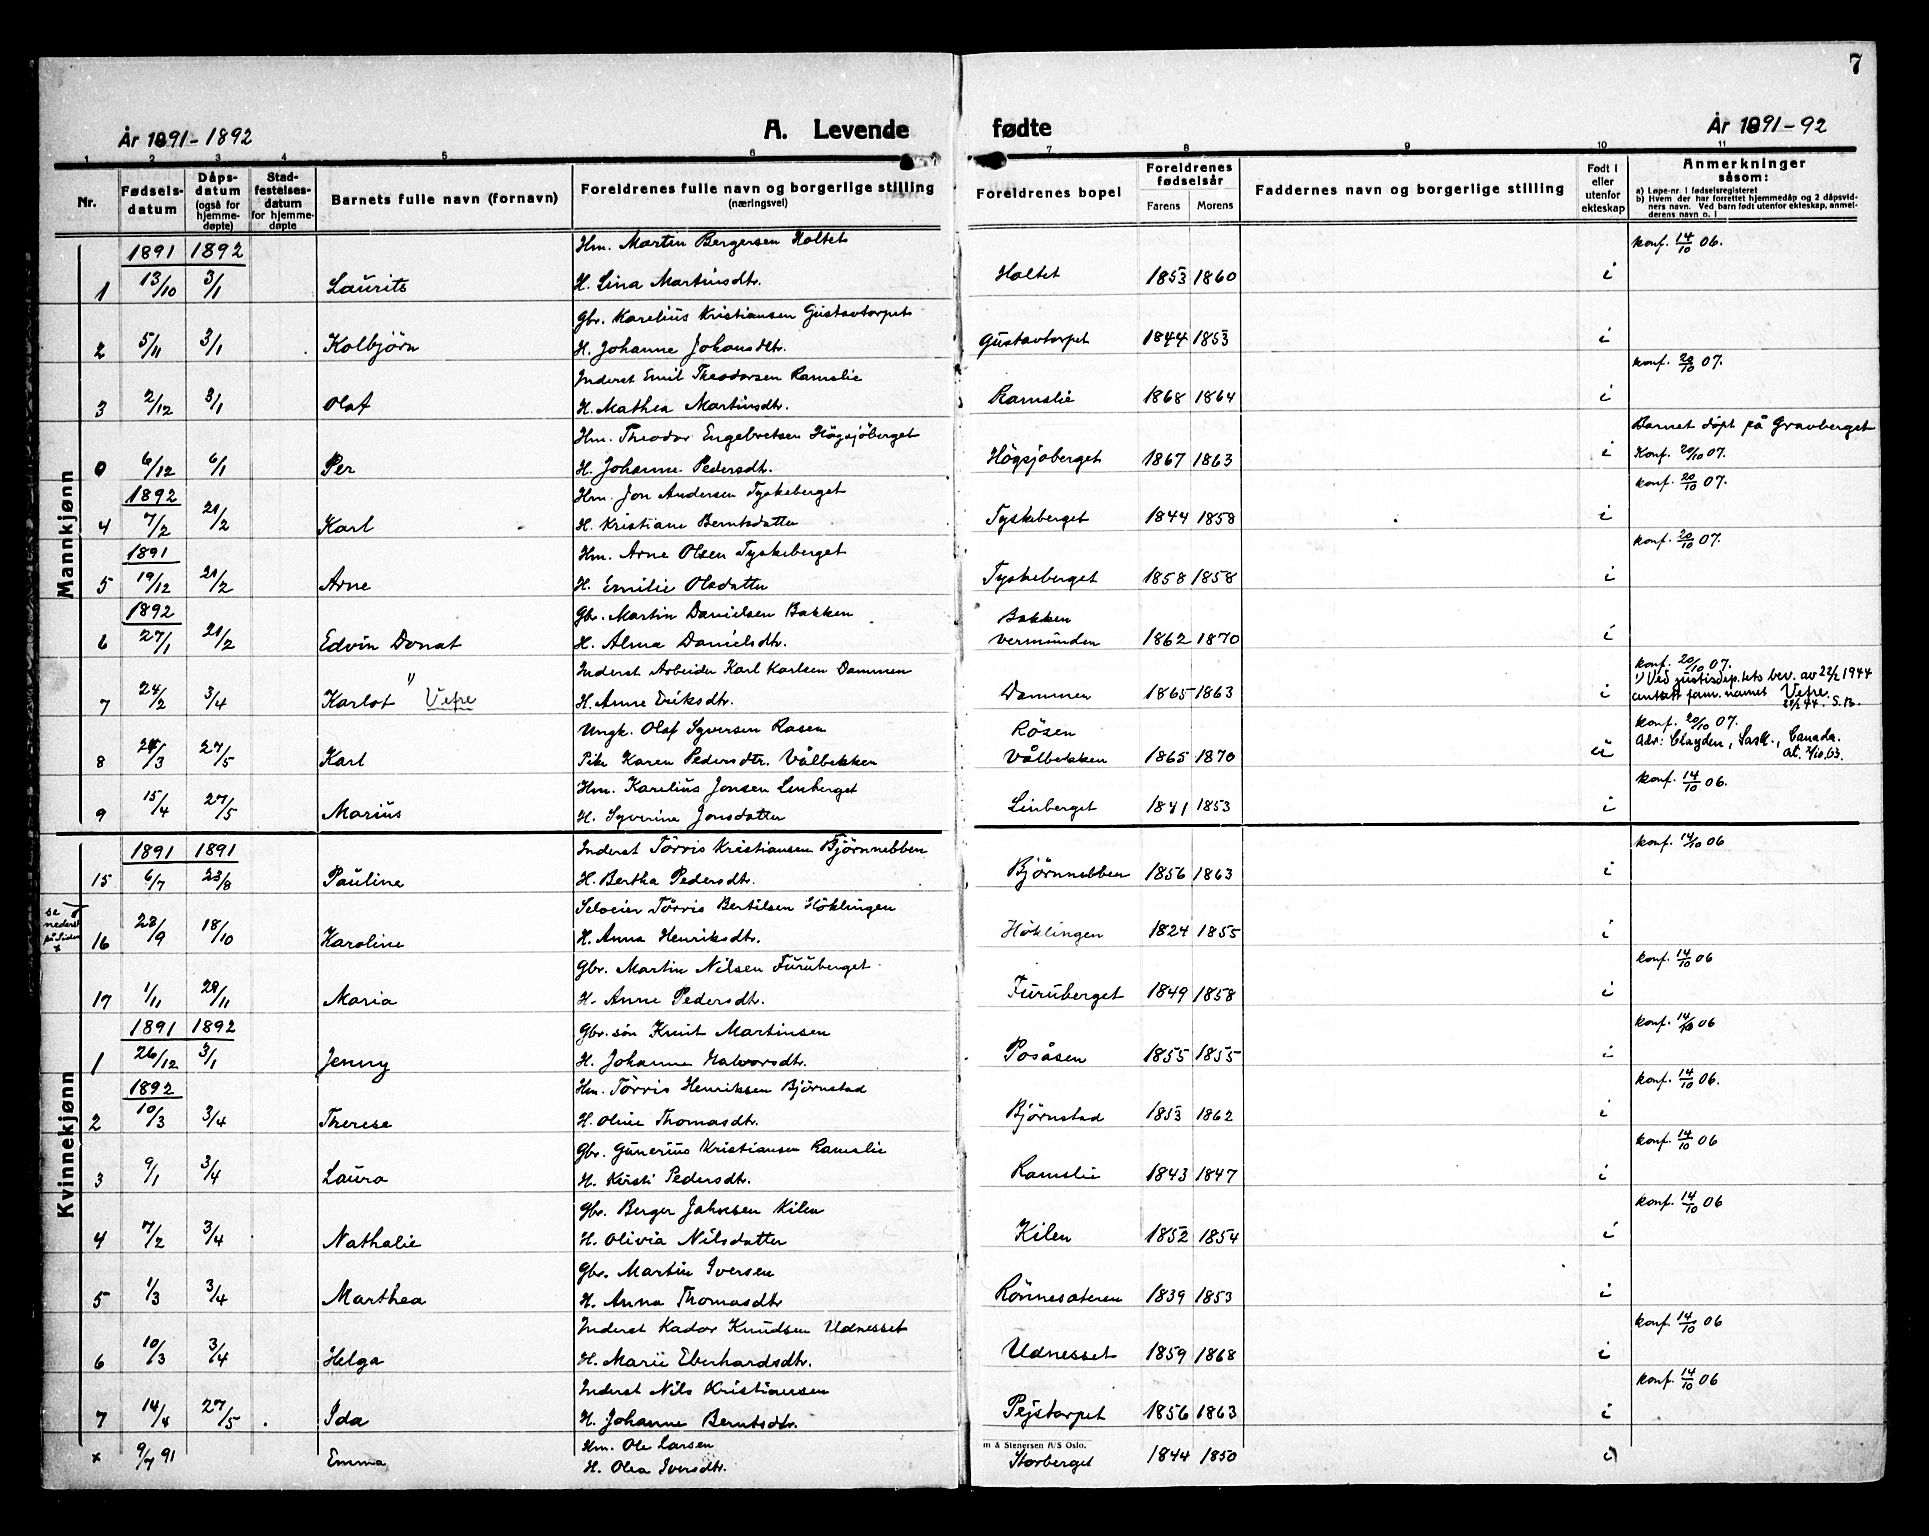 7
År 1891-1892
A. Levende fødte
År 1891-92
1 2 3 4 5 6 7 8 9 10 11
Nr.
Fødselsdatum
Dåpsdatum (også for hjemmedøpte)
Stadfestelsesdatum for hjemmedøpte
Barnets fulle navn (fornavn)
Foreldrenes fulle navn og borgerlige stilling (næringsvei)
Foreldrenes bopel
Foreldrenes fødselsår
Farens Morens
Faddernes navn og borgerlige stilling
Født i eller utenfor ekteskap
Anmerkninger såsom:
a) Løpe-nr. i fødselsregisteret
b) Hvem der har forrettet hjemmedåp og 2 dåpsvidners navn. Ved barn født utenfor ekteskap, anmelderens navn o. l
Mannkjønn
1891 1892 Hm. Martin Bergersen Holtet konf. 14/10 06.
1 13/10 3/1 Laurits H. Lina Martinsdtr. Holtet 1853 1860 i
Gbr. Karelius Kristiansen Gustavtorpet
2 5/11 3/1 Kolbjörn H. Johanne Johansdtr. Gustavtorpet 1844 1853 i
Inderst Emil Theodorsen Ramslie konf. 20/10 07.
3 2/12 3/1 Olaf H. Mathea Martinsdtr. Ramslie 1868 1864 i
Hm. Theodor Engebretsen Högsjöberget Barnet döpt på Gravberget
0 6/12 6/1 Per H. Johanne Pedersdtr. Högsjöberget 1867 1863 i Konf. 20/10 07.
1892 Hm. Jon Andersen Tyskeberget konf. 20/10 07.
4 7/2 21/2 Karl H. Kristiane Berntsdatter Tyskeberget 1844 1858 i
1891 Hm. Arne Olsen Tyskeberget konf. 20/10 07.
5 19/12 21/2 Arne H. Emilie Olsdatter Tyskeberget 1858 1858 i
1892 Gbr. Martin Danielsen Bakken Bakken
6 27/1 21/2 Edvin Donat H. Alma Danielsdtr. Vermunden 1862 1870 i
Inderst Arbeider Karl Karlsen Dammen konf. 20/10 07.
7 24/2 3/4 Karlot 1) Vefre H. Anne Eriksdtr. Dammen 1865 1863 i
1) Ved justisdep.tets bev. av 22/2 1944
antatt fam.navnet Vefre.
S.B.
Ungk. Olaf Syversen Rosen Rösen konf. 20/10 07.
8 /3 27/5 Karl Pike Karen Pedersdtr. Vålbekken Vålbekken 1865 1870 u
Adr: Clayden, Sask., Canada.
at. 7/10.63.
Hm. Karelius Jonsen Linberget konf. 14/10 06.
9 15/4 27/5 Marius H. Syverine Jonsdatter Linberget 1841 1853 i
Kvinnekjønn
1891 1891 Inderst Törris Kristiansen Björnnebben konf. 14/10 06
15 6/7 23/8 Pauline H. Bertha Pedersdtr. Björnnebben 1856 1863 i
se nederst på siden x
Selveier Törris Bertilsen Höklingen
16 23/9 18/10 Karoline H. Anna Henriksdtr. Höklingen 1824 1855 i
Gbr. Martin Nilsen Furuberget konf. 14/10 06
17 1/11 29/11 Maria H. Anne Pedersdtr. Furuberget 1849 1858 i
1891 1892 Gbr. sön Knut Martinsen konf. 14/10 06
1 26/12 3/1 Jenny H. Johanne Halvorsdtr. Posåsen 1855 1855 i
1892 Hm. Törris Henriksen Björnstad konf. 14/10 06.
2 10/3 3/4 Therese H. Oline Thomasdtr. Björnstad 1853 1862 i
Gbr. Gunerius Kristiansen Ramslie konf. 14/10 06
3 9/1 3/4 Laura H. Kirsti Pedersdtr. Ramslie 1843 1847 i
Gbr. Berger Johnsen Kilen konf. 14/10 06
4 7/2 3/4 Nathalie H. Olivia Nilsdatter Kilen 1852 1854 i
Gbr. Martin Iversen
5 1/3 3/4 Marthea H. Anna Thomasdtr Rönnesæteren 1839 1853 i
Inderst Kador Knudsen Udnesset konf. 14/10 06
6 10/3 3/4 Helga H. Marie Eberhardsdtr. Udnesset 1859 1868 i
Inderst Nils Kristiansen konf. 14/10 06
7 14/4 27/5 Ida H. Johanne Berntsdtr. Pejstorpet 1856 1863 i
Hm. Ole Larsen
m & Stenersen A/S Oslo.
x 9/7 91 Emma H. Olea Iversdtr. Storberget 1844 1850 i